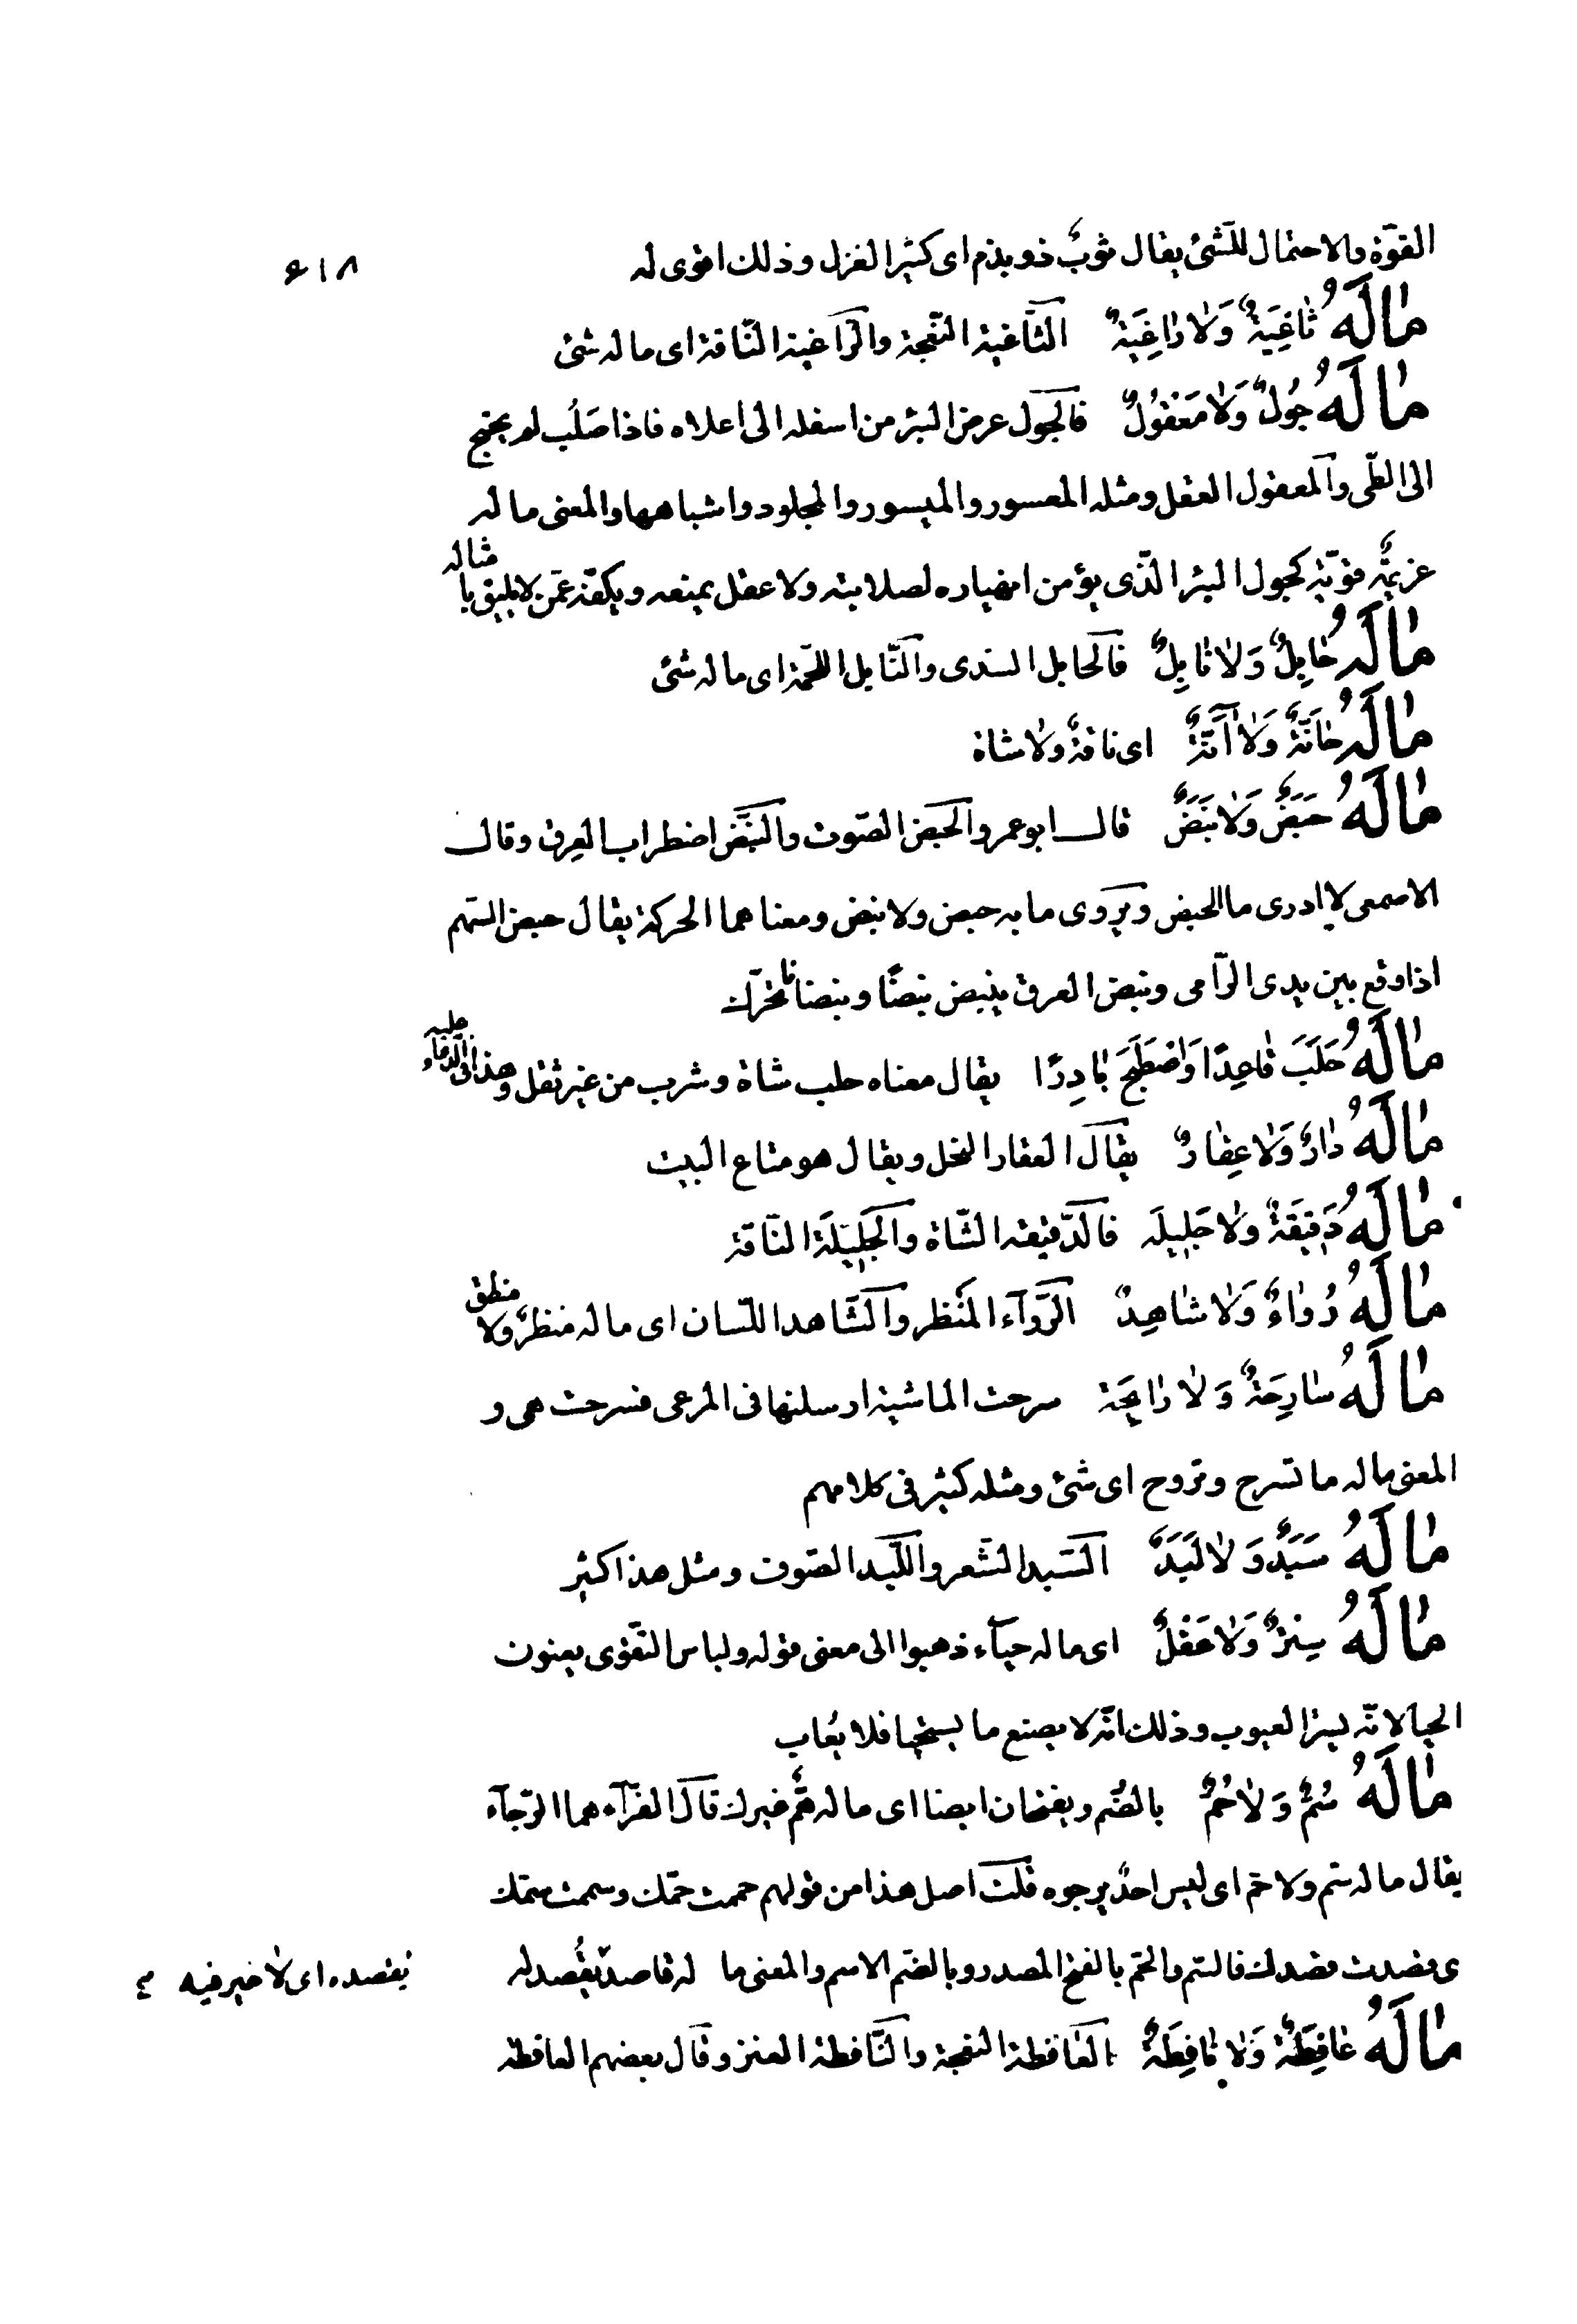 القوّة والاحتمال للشئ يقال ثوبٌ ذو بذم اى كثير الغزل وذلك اقوى له
٦١٨
مٰالَهُ ثٰاغِيَةٌ وَلٰا رٰاغِيَةٌ الثّاغية النّعجة والرّاغية النّاقة اى ما له شئ
مٰالَهُ جُولٌ وَلٰا مَعْقُولٌ فالجول عرض البئر من اسفله الى اعلاه فاذا صَلُب لم يحتج
الى الطّى والمعقول العقل ومثله المعسور والميسور والمجلود واشباهها والمعنى ما له
عزيمةٌ قويّة كجول البئر الّذى يؤمن انهياره لصلابته ولا عقل يمنعه ويكفّه عمّن لا يليق با مثاله
مٰالَهُ حٰابِلٌ وَلٰا نٰابِلٌ فالحابل السّدى والنّابل اللّحمة اى ما له شئ
مٰالَهُ حٰانَّةٌ وَلٰا آنَّةٌ اى ناقةٌ ولا شاة
مٰالَهُ حَبَضٌ وَلٰا نَبَضٌ قال ابو عمرو الحبض الصّوت والنّبض اضطراب العِرق وقال
الاصمعى لا ادرى ما الحبض ويروى ما به حبض ولا نبض ومعناهما الحركة يقال حبض السّهم
اذا وقع بين يدى الرّامى ونبض العرق ينبض نبضًا ونبضانا تحرّك
مٰالَهُ حَلَبَ قٰاعِدًا وَاصْطَبَحَ بٰارِدًا يقال معناه حلب شاة وشرب من غير ثفل وهذا فى الدّعاء عليه
مٰالَهُ دٰارٌ وَلٰا عِقٰارٌ يقال العقار النخل ويقال هو متاع البيت
مٰالَهُ دَقِيقَةٌ ولٰا جَلِيلَه فالدّقيقه الشّاة والجَلِيلَة النّاقة
مٰالَهُ رُوٰاءٌ وَلٰا شٰاهِدٌ الرّوآء المَنظر والشّاهد اللّسان اى ما له منظرٌ ولا منطق
مٰالَهُ سٰارِحَةٌ وَلٰا رٰايِحَة سرحت الماشية ارسلتها فى المرعى فسرحت هى و
المعنى ما له ما تسرح وتروح اى شئ ومثله كثير فى كلامهم
مٰالَهُ سَبَدٌ وَلٰا لَبَدٌ السّبد الشّعر واللّبد الصّوف ومثل هذا كثير
مٰالَهُ سِترٌ وَلٰا عَقْلٌ اى ما له حيآء ذهبوا الى معنى قوله ولباس التّقوى يعنون
الحيا لانّه يستر العيوب وذلك انّه لا يصنع ما يستحيا فلا يُعاب
مٰالَهُ سُمٌّ وَلٰا حُمٌّ بالضّم ويفتحان ايضا اى ما له همٌّ غيرك قال الفرّآء هما الرّجآء
يقال ما له سّم ولا حّم اى ليس احدٌ يرجوه قلت اصل هذا من قولهم حممت حمّك وسممت سمّك
ى قصدت قصدك فالسّم والحّم بالفتح المصدر وبالضّم الاسم والمعنى ما له قاصدٌ يقصُد له
يقصده اى لا خير فيه
مٰالَهُ عٰافِطَةٌ وَلٰا نٰافِطَةٌ العافطة النعجة والنّافطة العنز وقال بعضهم العافطة